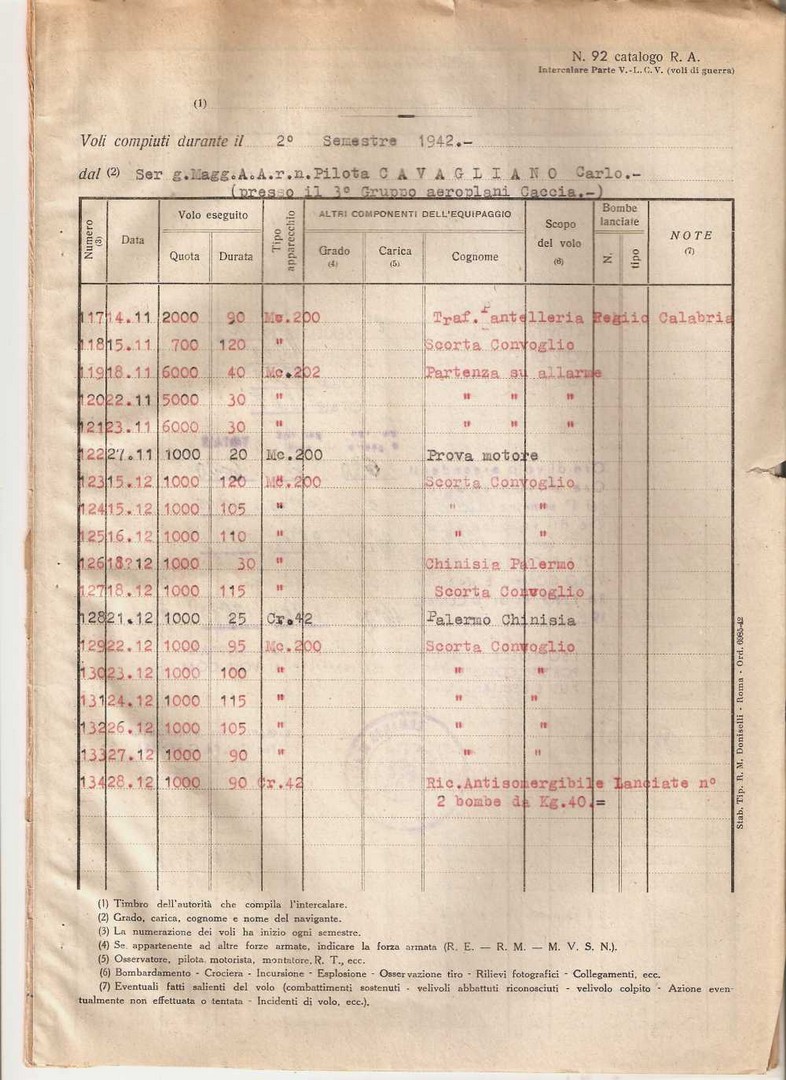 N. 92 catalogo R. A.
Intercalare Parte V.-L.C.V. (voli di guerra)
(1)
Voli compiuti durante il 2º Semestre 1942.-
dal (2) Ser g.Magg.A.A.r.n.Pilota C A V A G L I A N O Carlo.-
(presso il 3º Gruppo aeroplani Caccia.-)
Numero (3) Data Volo eseguito Quota Durata Tipo apparecchio ALTRI COMPONENTI DELL'EQUIPAGGIO Grado (4) Carica (5) Cognome Scopo del volo (6) Bombe lanciate N. tipo NOTE (7)
117 14.11 2000 90 Mc.200 Traf. Pantelleria Reggio Calabria
118 15.11 700 120 " Scorta Convoglio
119 18.11 6000 40 Mc.202 Partenza su allarme
120 22.11 5000 30 " " " "
121 23.11 6000 30 " " " "
122 27.11 1000 20 Mc.200 Prova motore
123 15.12 1000 120 Mc.200 Scorta Convoglio
124 15.12 1000 105 " " "
125 16.12 1000 110 " " "
126 18?12 1000 30 " Chinisia Palermo
127 18.12 1000 115 " Scorta Convoglio
128 21.12 1000 25 Cr.42 Palermo Chinisia
129 22.12 1000 95 Mc.200 Scorta Convoglio
130 23.12 1000 100 " " "
131 24.12 1000 115 " " "
132 26.12 1000 105 " " "
133 27.12 1000 90 " " "
134 28.12 1000 90 Cr.42 Ric.Antisomergibile Lanciate nº
2 bombe da Kg.40.=
(1) Timbro dell'autorità che compila l'intercalare.
(2) Grado, carica, cognome e nome del navigante.
(3) La numerazione dei voli ha inizio ogni semestre.
(4) Se appartenente ad altre forze armate, indicare la forza armata (R. E. — R. M. — M. V. S. N.).
(5) Osservatore, pilota, motorista, montatore, R. T., ecc.
(6) Bombardamento - Crociera - Incursione - Esplosione - Osservazione tiro - Rilievi fotografici - Collegamenti, ecc.
(7) Eventuali fatti salienti del volo (combattimenti sostenuti - velivoli abbattuti riconosciuti - velivolo colpito - Azione even-
tualmente non effettuata o tentata - Incidenti di volo, ecc.).
Stab. Tip. R. M. Doniselli - Roma - Ord. 6985-42